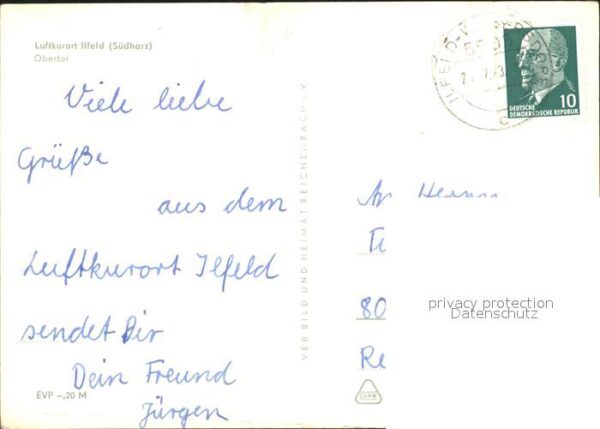 Luftkurort Ilfeld (Südharz)
Obertor
Viele liebe
Grüße
aus dem
Luftkurort Ilfeld
sendet Dir
Dein Freund
Jürgen
EVP –,20 M
VEB BILD UND HEIMAT REICHENBACH i. V.
ILFELD
10
DEUTSCHE
DEMOKRATISCHE REPUBLIK
An Herrn
80
Re
privacy protection
Datenschutz